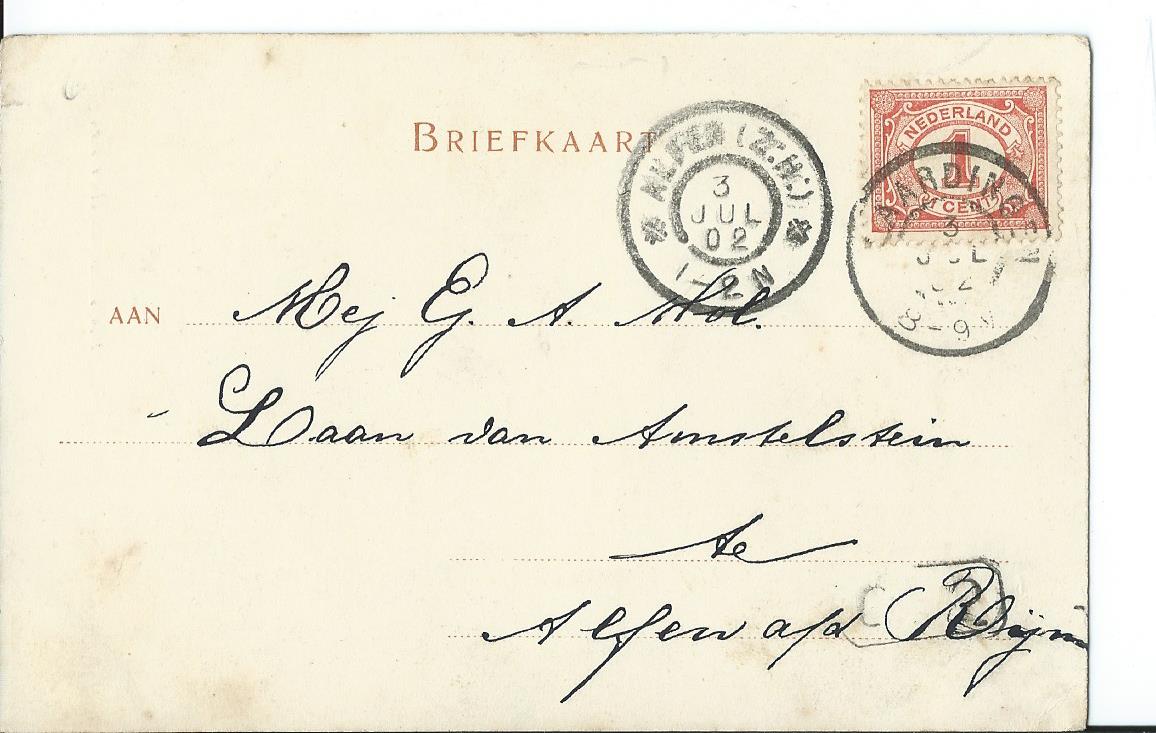 BRIEFKAART
ALFEN (Z.H.)
3
JUL
02
1-2N
NEDERLAND
1
CENT
3
JUL
02
8-9V
AAN Mej G. A. Mol.
Laan van Amstelstein
te
Alfen a/d Rijn